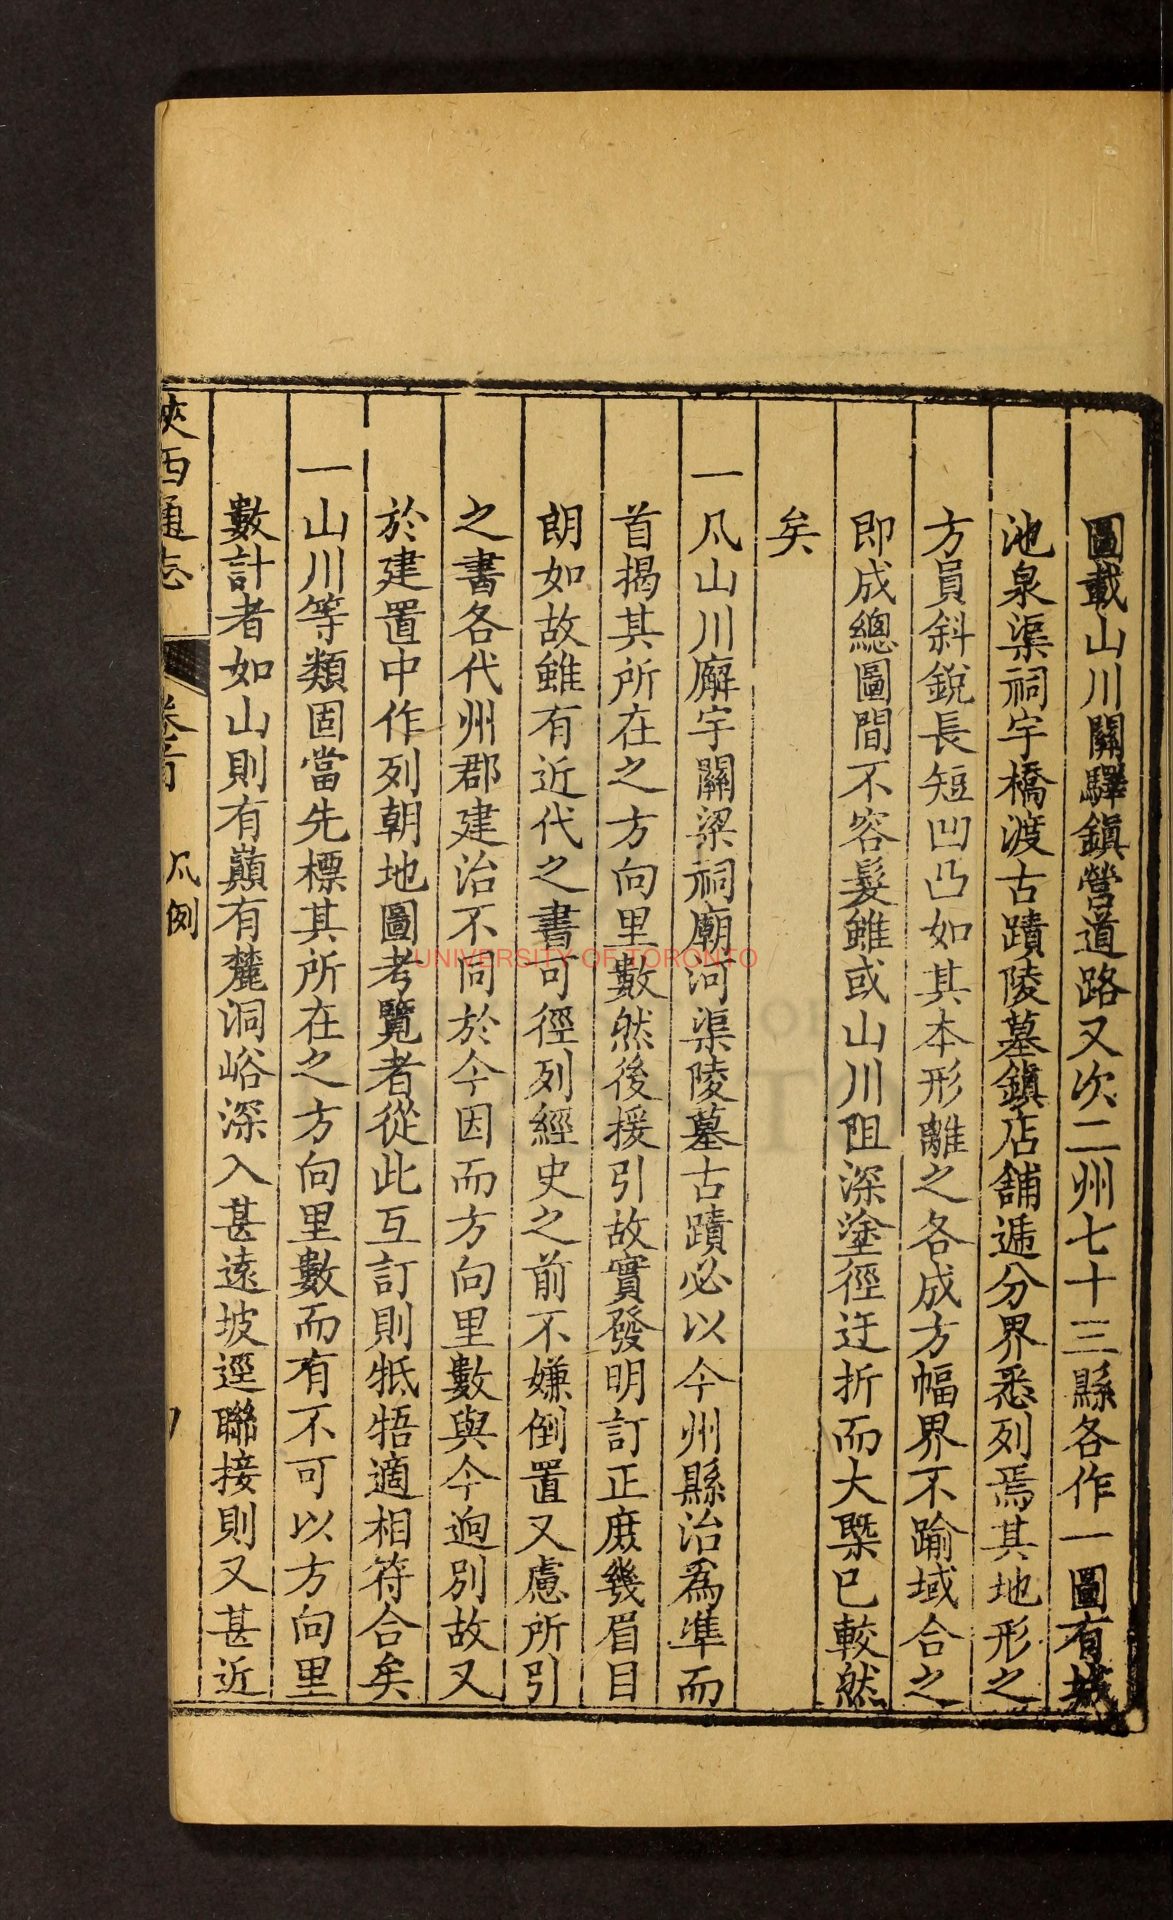 圖載山川關驛鎮營道路又次二州七十三縣各作一圖有城
池泉渠祠宇橋渡古蹟陵墓鎮店舖遞分界悉列焉其地形之
方員斜銳長短凹凸如其本形離之各成方幅界不踰域合之
即成總圖間不容髮雖或山川阻深塗徑迂折而大槩已較然
矣
一凡山川廨宇關梁祠廟河渠陵墓古蹟必以今州縣治為準而
首揭其所在之方向里數然後援引故實發明訂正庶幾眉目
朗如故雖有近代之書可徑列經史之前不嫌倒置又慮所引
之書各代州郡建治不同於今因而方向里數與今逈別故又
於建置中作列朝地圖考覽者從此互訂則牴牾適相符合矣
一山川等類固當先標其所在之方向里數而有不可以方向里
數計者如山則有巔有麓洞峪深入甚遠坡逕聯接則又甚近
陝西通志 卷首 凡例
UNIVERSITY OF TORONTO